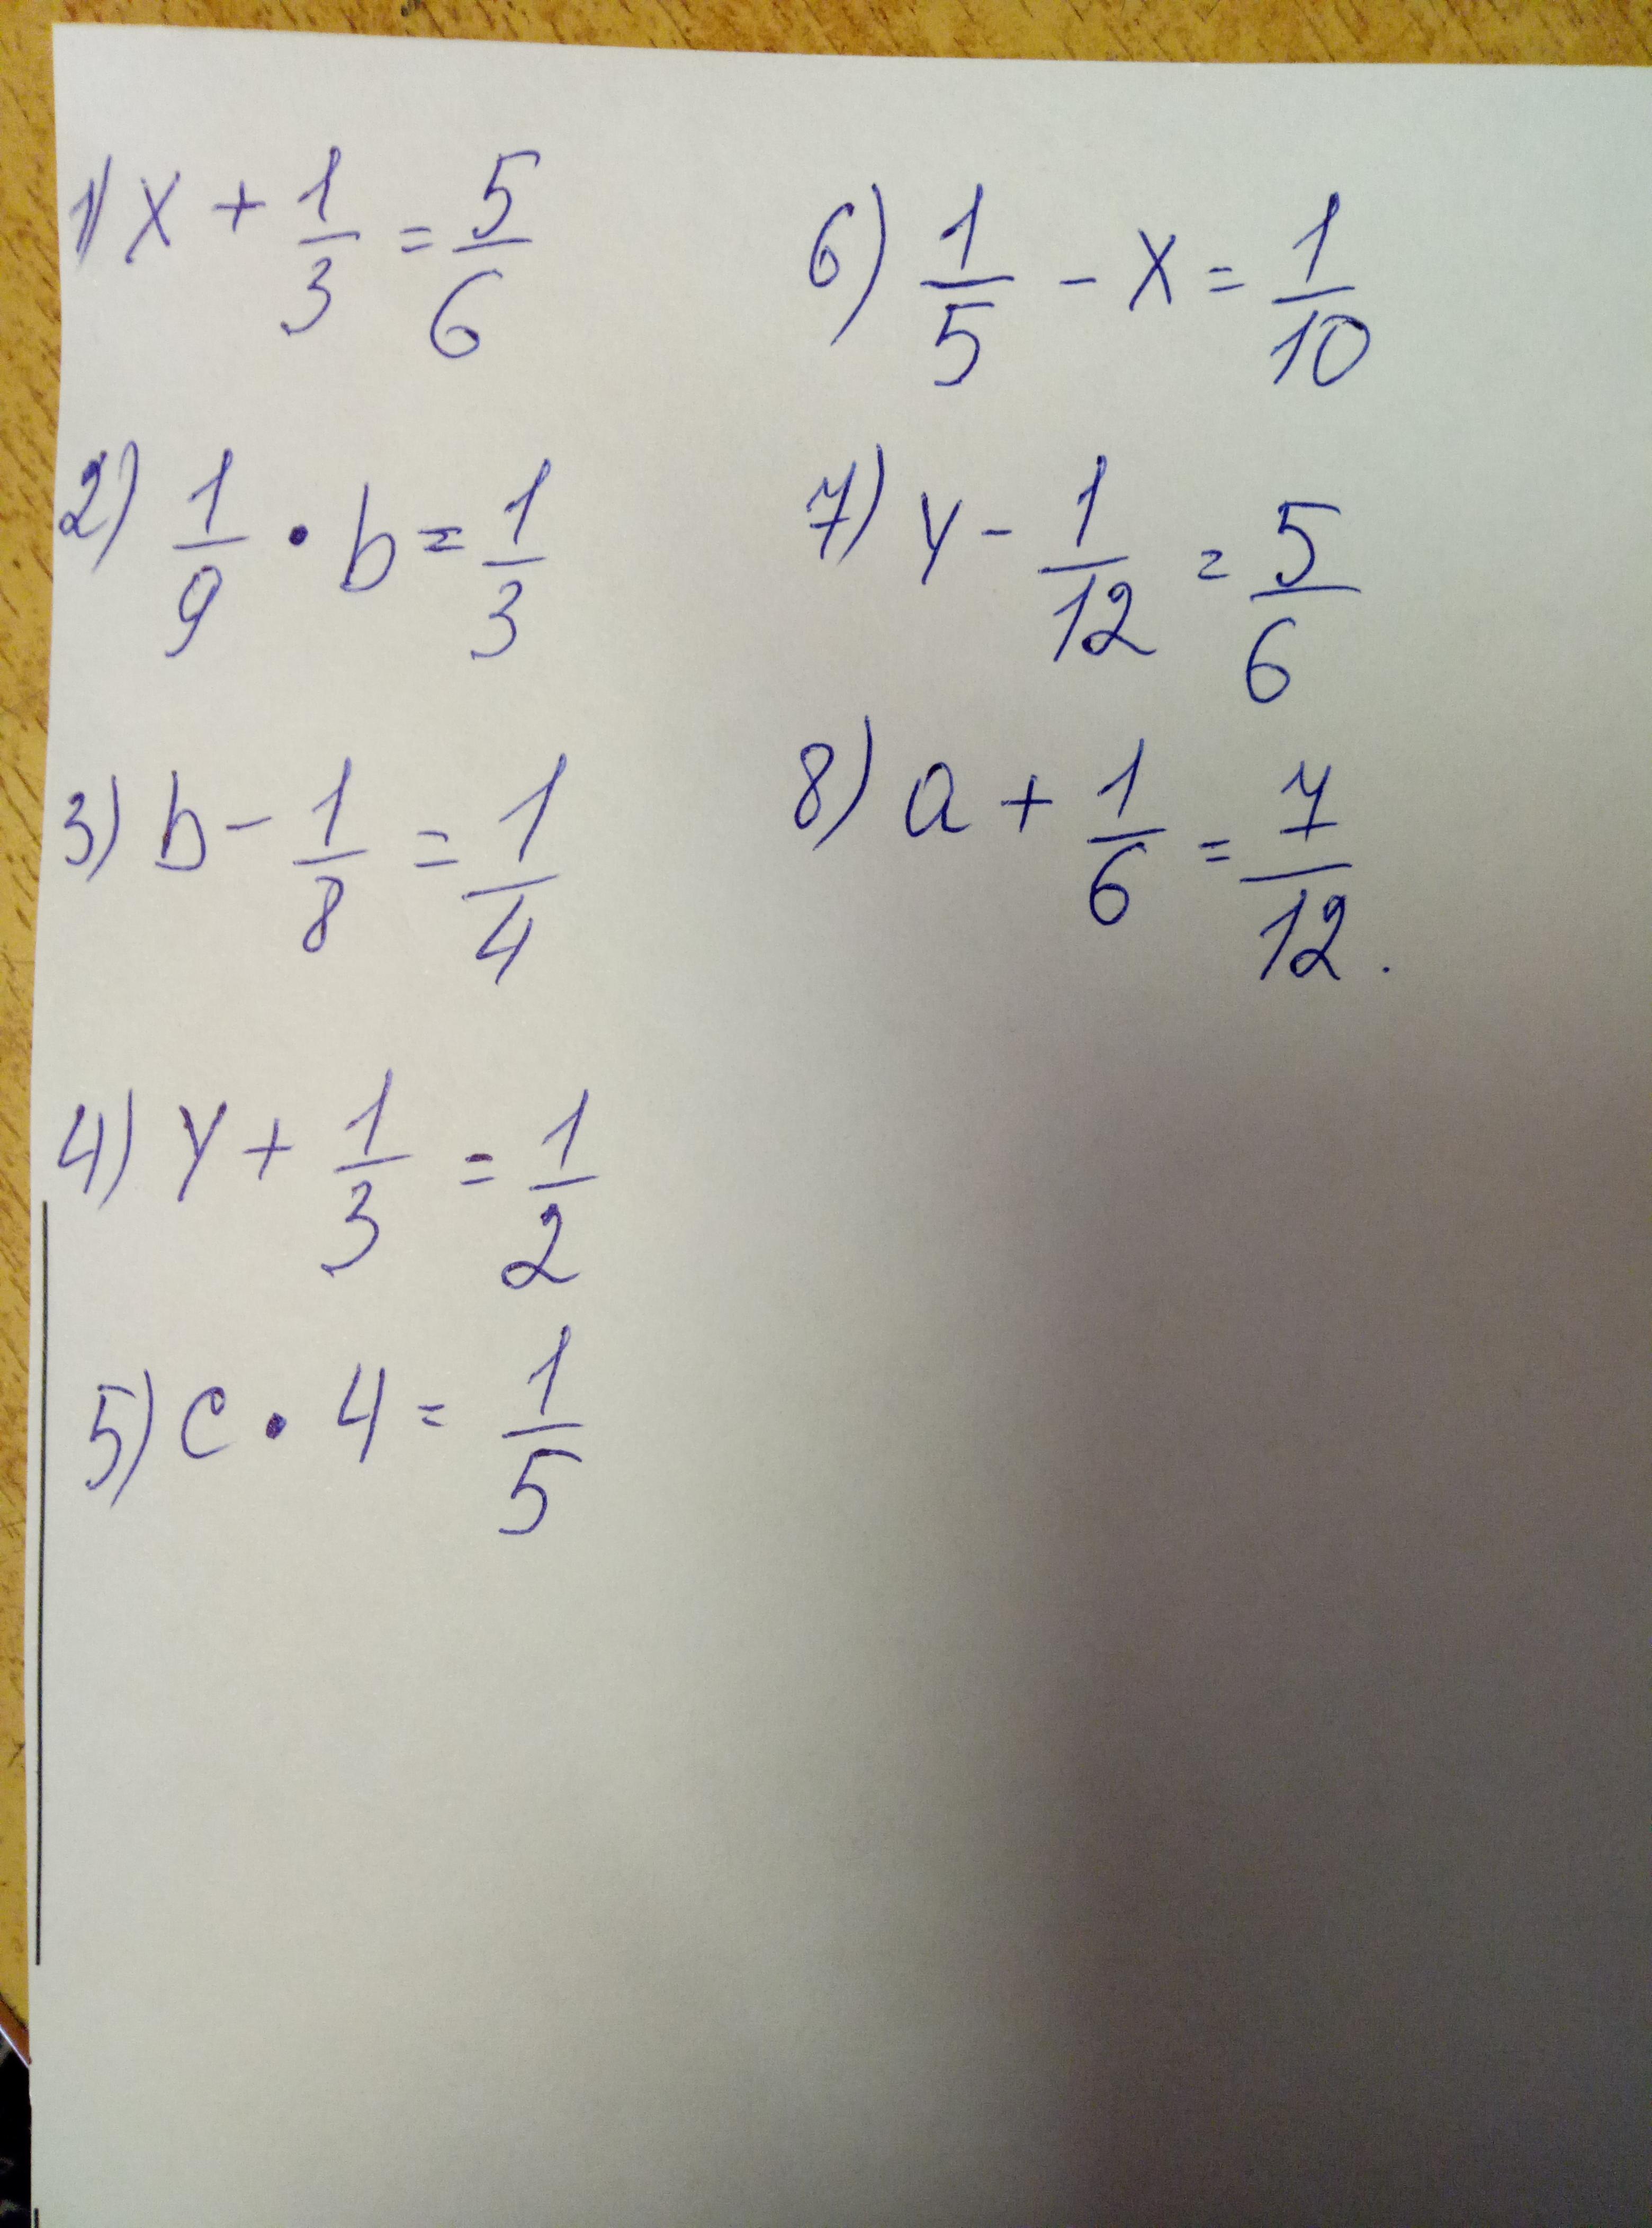 1) x + 1/3 = 5/6
2) 1/9 · b = 1/3
3) b - 1/8 = 1/4
4) y + 1/3 = 1/2
5) c · 4 = 1/5
6) 1/5 - x = 1/10
7) y - 1/12 = 5/6
8) a + 1/6 = 7/12.